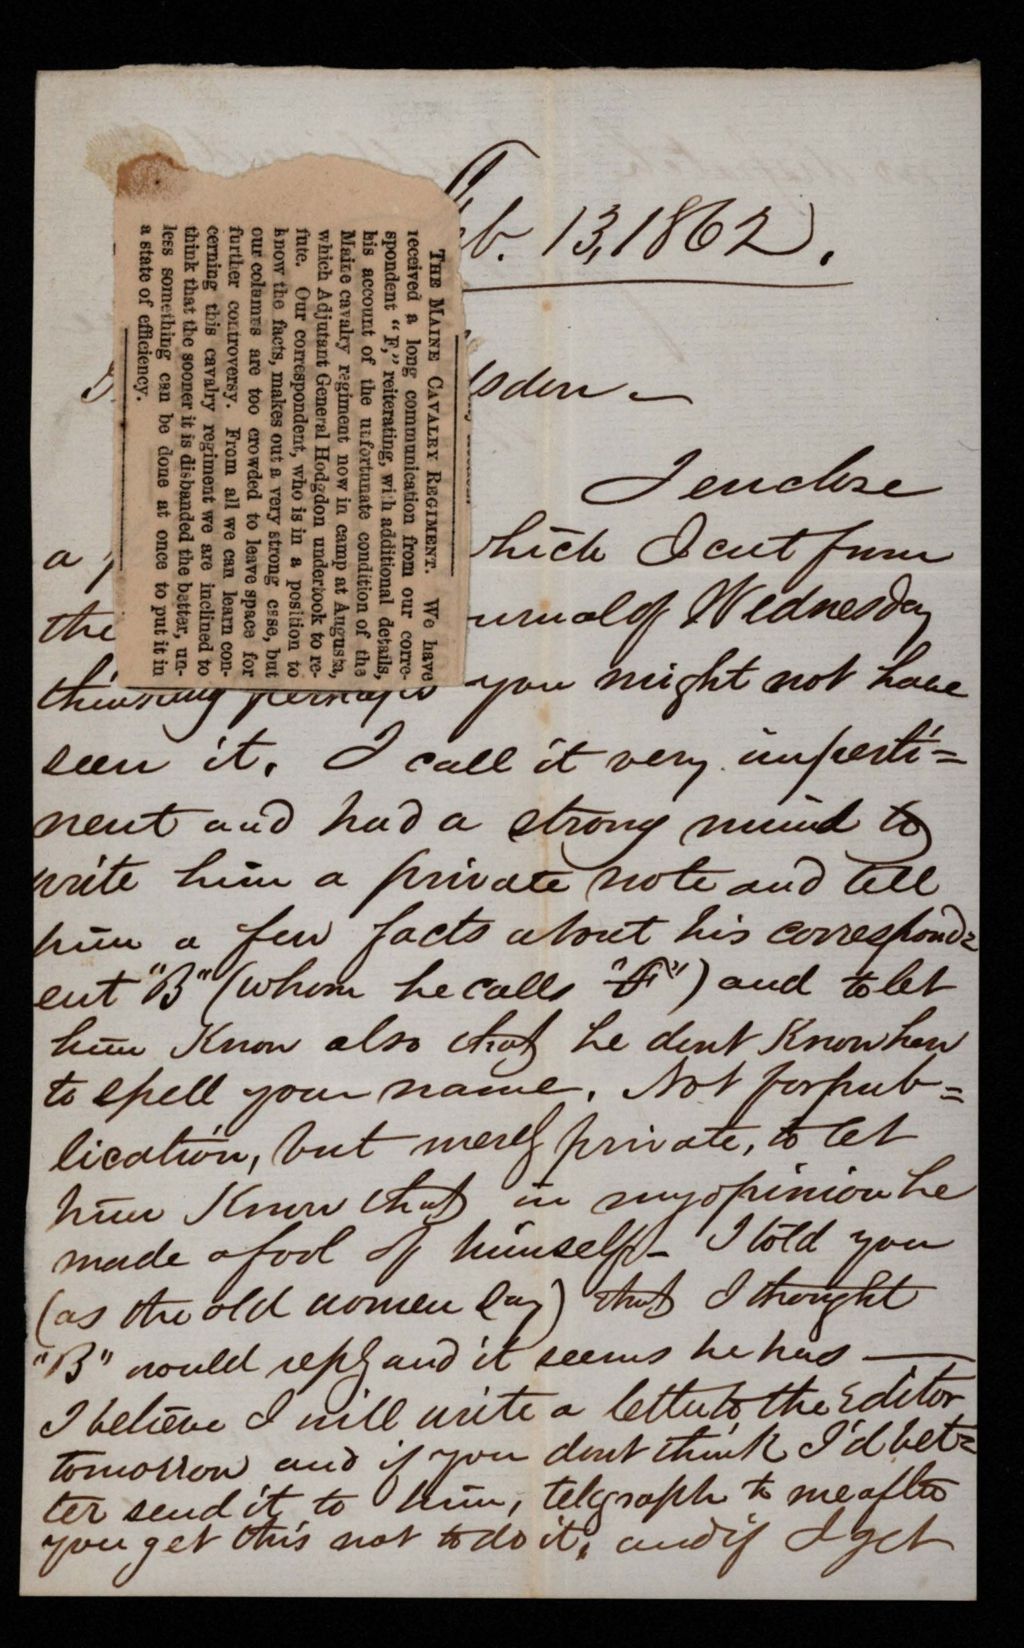 Feb. 13, 1862.
sdon —
I enclose
a which I cut from
the urnal of Wednesday
thinking perhaps you might not have
seen it. I call it very imperti=
nent and had a strong mind to
write him a private note and tell
him a few facts about his correspond=
ent "B" (whom he calls "F") and to let
him Know also that he dont Know how
to spell your name. Not for pub=
lication, but merely private, to let
him Know that in my opinion he
made a fool of himself — I told you
(as the old women say) that I thought
"B" would reply and it seems he has —
I believe I will write a letter to the Editor
tomorrow and if you dont think I'd bet=
ter send it to him, telegraph to me after
you get this not to do it, and if I get
THE MAINE CAVALRY REGIMENT. We have
received a long communication from our corre-
spondent "F," reiterating, with additional details,
his account of the unfortunate condition of the
Maine cavalry regiment now in camp at Augusta,
which Adjutant General Hodgdon undertook to re-
fute. Our correspondent, who is in a position to
know the facts, makes out a very strong case, but
our columns are too crowded to leave space for
further controversy. From all we can learn con-
cerning this cavalry regiment we are inclined to
think that the sooner it is disbanded the better, un-
less something can be done at once to put it in
a state of efficiency.